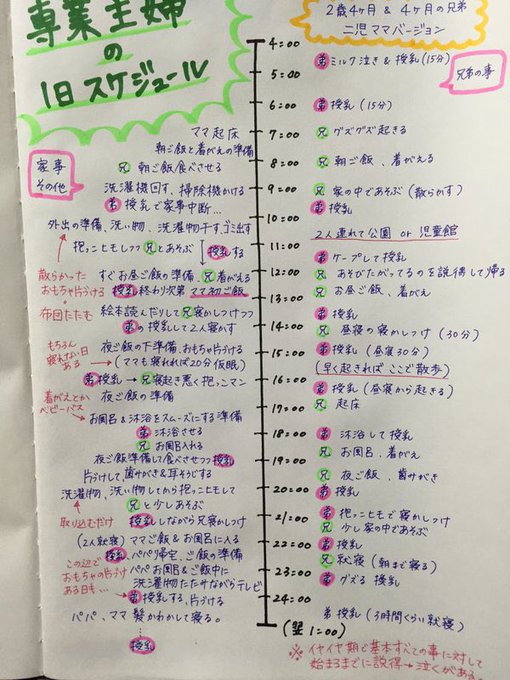 専業主婦
の
1日スケジュール
2歳4ヶ月 & 4ヶ月の兄弟
二児ママバージョン
兄弟の事
家事
その他
4:00
5:00
6:00
7:00
8:00
9:00
10:00
11:00
12:00
13:00
14:00
15:00
16:00
17:00
18:00
19:00
20:00
21:00
22:00
23:00
24:00
(翌1:00)
ママ起床
朝ご飯と着がえの準備
兄 朝ご飯食べさせる
洗濯機回す、掃除機かける
弟 授乳で家事中断…
外出の準備、洗い物、洗濯物干す、ゴミ出す
抱っこヒモしつつ兄とあそぶ
授乳する
散らかった
おもちゃ片づける
すぐお昼ご飯の準備、兄着がえる
授乳終わり次第ママ初ご飯
布団たたむ
絵本読んだりして兄寝かしつけつつ
弟の授乳して2人寝かす
もちろん
寝れない日
ある
夜ご飯の下準備、おもちゃ片づける
(ママも寝れれば20分仮眠)
弟 授乳→兄寝起き悪く抱っこマン
着がえとか
ベビーバス
夜ご飯の準備
お風呂&沐浴をスムーズにする準備
弟 沐浴させる
兄 お風呂入れる
夜ご飯準備して食べさせつつ授乳
片づけして、歯みがき&耳そうじする
洗濯物、洗い物してから抱っこヒモして
兄と少しあそぶ
取り込むだけ
授乳しながら兄寝かしつけ
(2人就寝)ママご飯&お風呂に入る
授乳、パパ帰宅、ご飯の準備
この辺で
おもちゃの片づけ
ある日も…
パパお風呂&ご飯中に
洗濯物たたみながらテレビ
弟 授乳する、片づける
パパ、ママ髪かわかして寝る。
授乳
弟 ミルク泣き&授乳(15分)
弟 授乳(15分)
兄 グズグズ起きる
兄 朝ご飯、着がえる
兄 家の中であそぶ(散らかす)
弟 授乳
2人連れて公園 or 児童館
弟 ケープして授乳
兄 あそびたがってるのを説得して帰る
兄 お昼ご飯、着がえ
弟 授乳
兄 昼寝の寝かしつけ(30分)
弟 授乳(昼寝30分)
(早く起きればここで散歩)
弟 授乳(昼寝から起きる)
兄 起床
弟 沐浴して授乳
兄 お風呂、着がえ
兄 夜ご飯、歯みがき
弟 授乳
弟 抱っこヒモで寝かしつけ
兄 少し家の中であそぶ
弟 授乳
兄 就寝(朝まで寝る)
弟 グズる 授乳
弟 授乳(3時間くらい就寝)
※イヤイヤ期で基本すべての事に対して
始まるまでに説得→泣くがある。